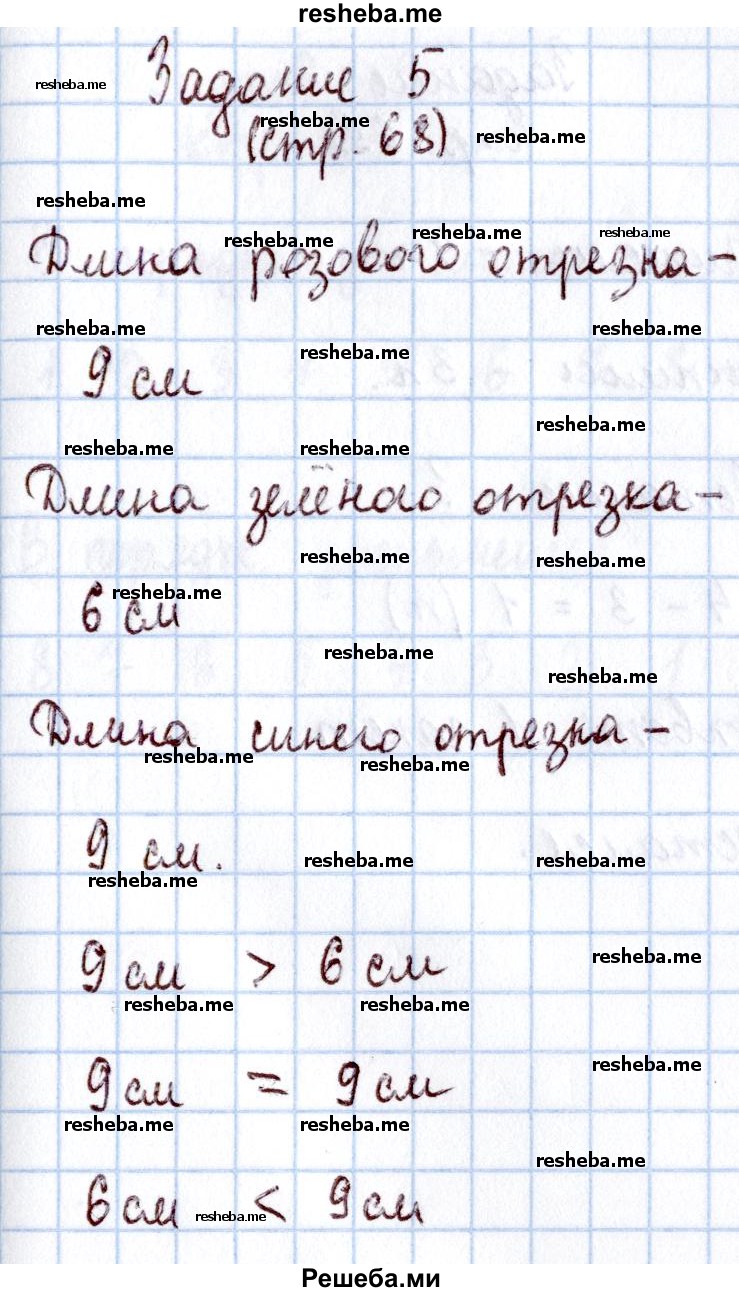 resheba.me
resheba.me
Задание 5
resheba.me
(стр. 68) resheba.me
resheba.me
resheba.me resheba.me resheba.me
Длина розового отрезка -
resheba.me resheba.me
resheba.me
9 см
resheba.me
resheba.me resheba.me
Длина зелёного отрезка -
resheba.me resheba.me
resheba.me
6 см
resheba.me
resheba.me
Длина синего отрезка -
resheba.me resheba.me
9 см. resheba.me resheba.me
resheba.me
9 см > 6 см resheba.me
resheba.me resheba.me
resheba.me
9 см = 9 см
resheba.me resheba.me
resheba.me
6 см < 9 см
resheba.me
Решеба.ми